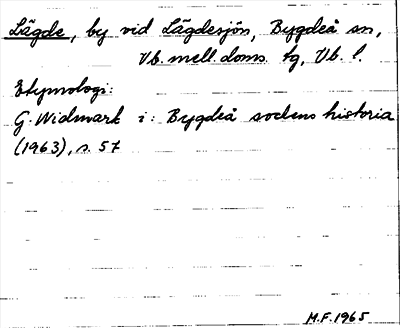 Lägde, by vid Lägdesjön, Bygdeå sn,
Vb. mell. doms. tg, Vb. l.
Etymologi:
G. Widmark i: Bygdeå sockens historia
(1963), s. 57
M.F. 1965